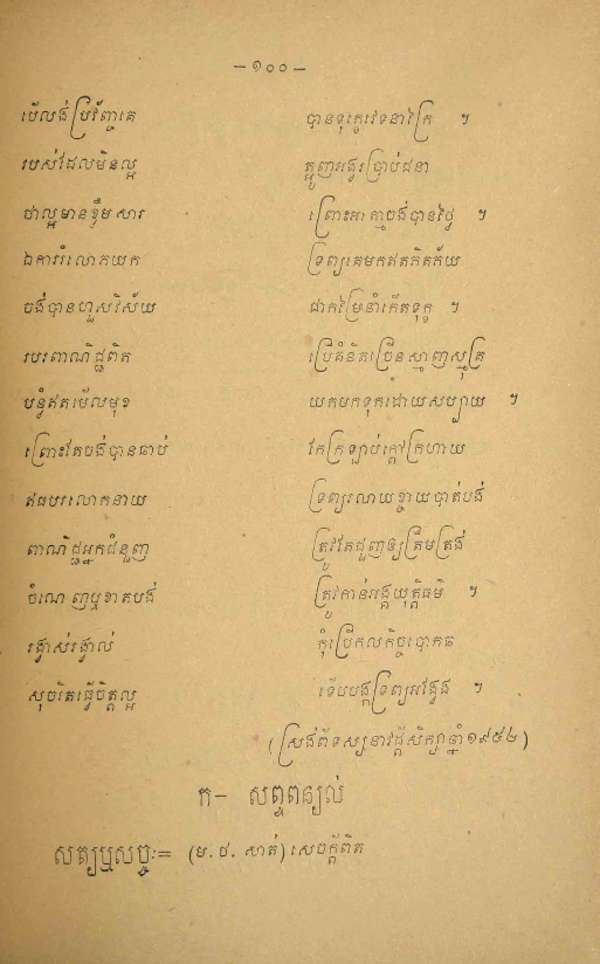 – ១០០ –
បើលង់ប្រវ័ញ្ចគេ បានទុក្ខវេទនាក្រៃ ។
របស់ដែលមិនល្អ ត្អូញអង្វរប្រាប់ជនា
ថាល្អមានខ្លឹមសារ ព្រោះអាត្មាចង់បានថ្លៃ ។
ឯការរំលោភយក ទ្រព្យគេមកឥតគិតភ័យ
ចង់បានហួសវិស័យ ជាកម្រៃនាំកើតទុក្ខ ។
របរពាណិជ្ជពិត ប្រើគំនិតច្រើនស្មាញស្មុគ្រ
បន្លំឥតមើលមុខ យកមកទុកដោយសប្បាយ ។
ព្រោះតែចង់បានឆាប់ កែក្រឡាប់ក្ដៅក្រហាយ
ឥធបរលោកនាយ ទ្រព្យរលាយខ្ចាយបាត់បង់
ពាណិជ្ជអ្នកជំនួញ ត្រូវតែជួញឲ្យត្រឹមត្រង់
ចំណេញឬខាតបង់ ត្រូវកាន់អង្គយុត្តិធម៌ ។
រង្វាស់រង្វាល់ កុំប្រើកលកិច្ចបោកឆ
សុចរិតធ្វើចិត្តល្អ ទើបបង្កទ្រព្យអង្វែង ។
(ស្រង់ពីទស្សនាវដ្ដីសិក្សាឆ្នាំ១៩៥៤)
ក– សព្ទពន្យល់
សត្យឬសច្ចៈ= (ម. ថ. សាត់) សេចក្ដីពិត